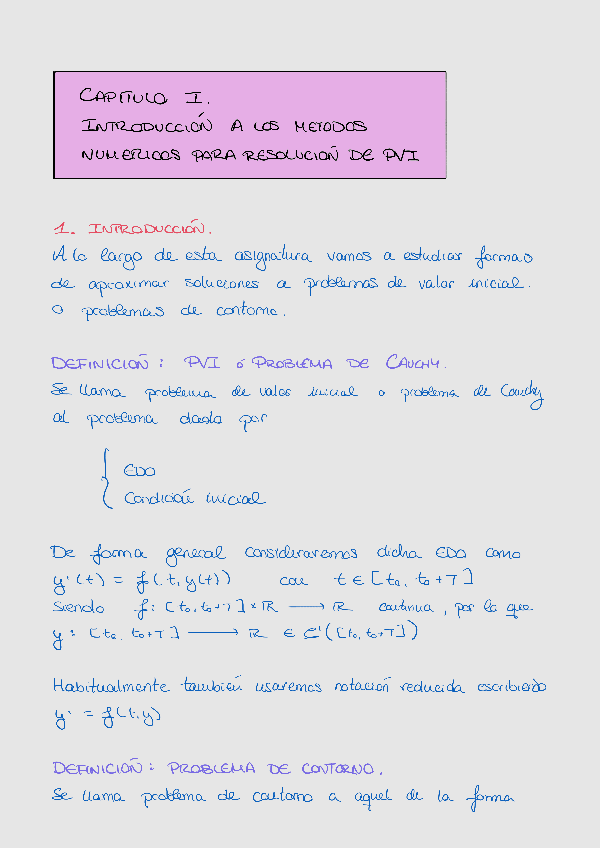 CAPÍTULO II.
INTRODUCCIÓN A LOS METODOS
NUMERICOS PARA RESOLUCIÓN DE PVI
1. INTRODUCCIÓN.
A lo largo de esta asignatura vamos a estudiar formas
de aproximar soluciones a problemas de valor inicial.
o problemas de contorno.
DEFINICIÓN: PVI ó PROBLEMA DE CAUCHY.
Se llama problema de valor inicial o problema de Cauchy
al problema dado por
{ EDO
Condición inicial
De forma general consideraremos dicha EDO como
y'(t) = f(t, y(t)) con t ∈ [t₀, t₀+T]
Siendo f: [t₀, t₀+T] × ℝ ⟶ ℝ continua, por lo que
y: [t₀, t₀+T] ⟶ ℝ ∈ C¹([t₀, t₀+T])
Habitualmente también usaremos notación reducida escribiendo
y' = f(t,y)
DEFINICIÓN: PROBLEMA DE CONTORNO.
Se llama problema de contorno a aquel de la forma